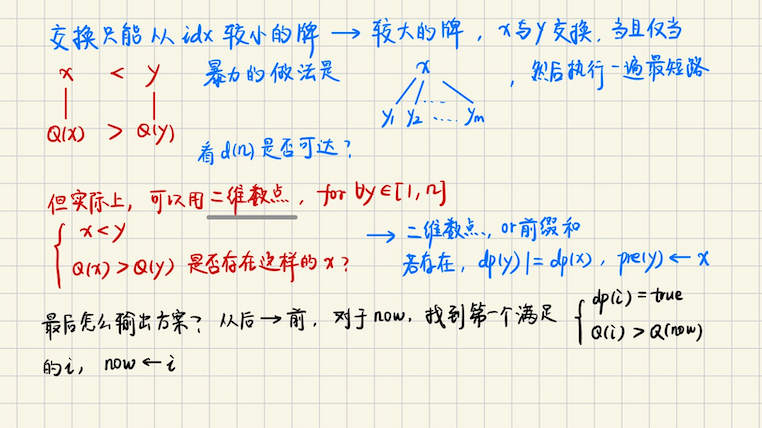 交换只能从idx较小的牌 → 较大的牌，x与y交换，当且仅当
x < y
Q(x) > Q(y)
暴力的做法是
x
y1 y2 ..... ym
，然后执行一遍最短路
看d(n)是否可达？
但实际上，可以用二维数点，for ∀y∈[1, n]
{ x<y
Q(x) > Q(y) 是否存在这样的x？
→ 二维数点，or前缀和
若存在，dp(y) |= dp(x)，pre(y) ← x
最后怎么输出方案？从后→前，对于now，找到第一个满足 { dp(i) = true
Q(i) > Q(now)
的i， now ← i